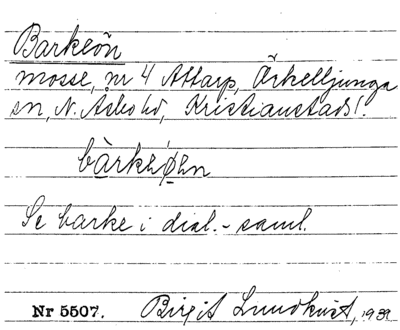 Barkeön
mosse, nr 4 Attarp, Örkelljunga
sn, N. Åsbo hd, Kristianstads l.
Se barke i dial.-saml.
Nr 5507. Birgit Lundkvist, 1939